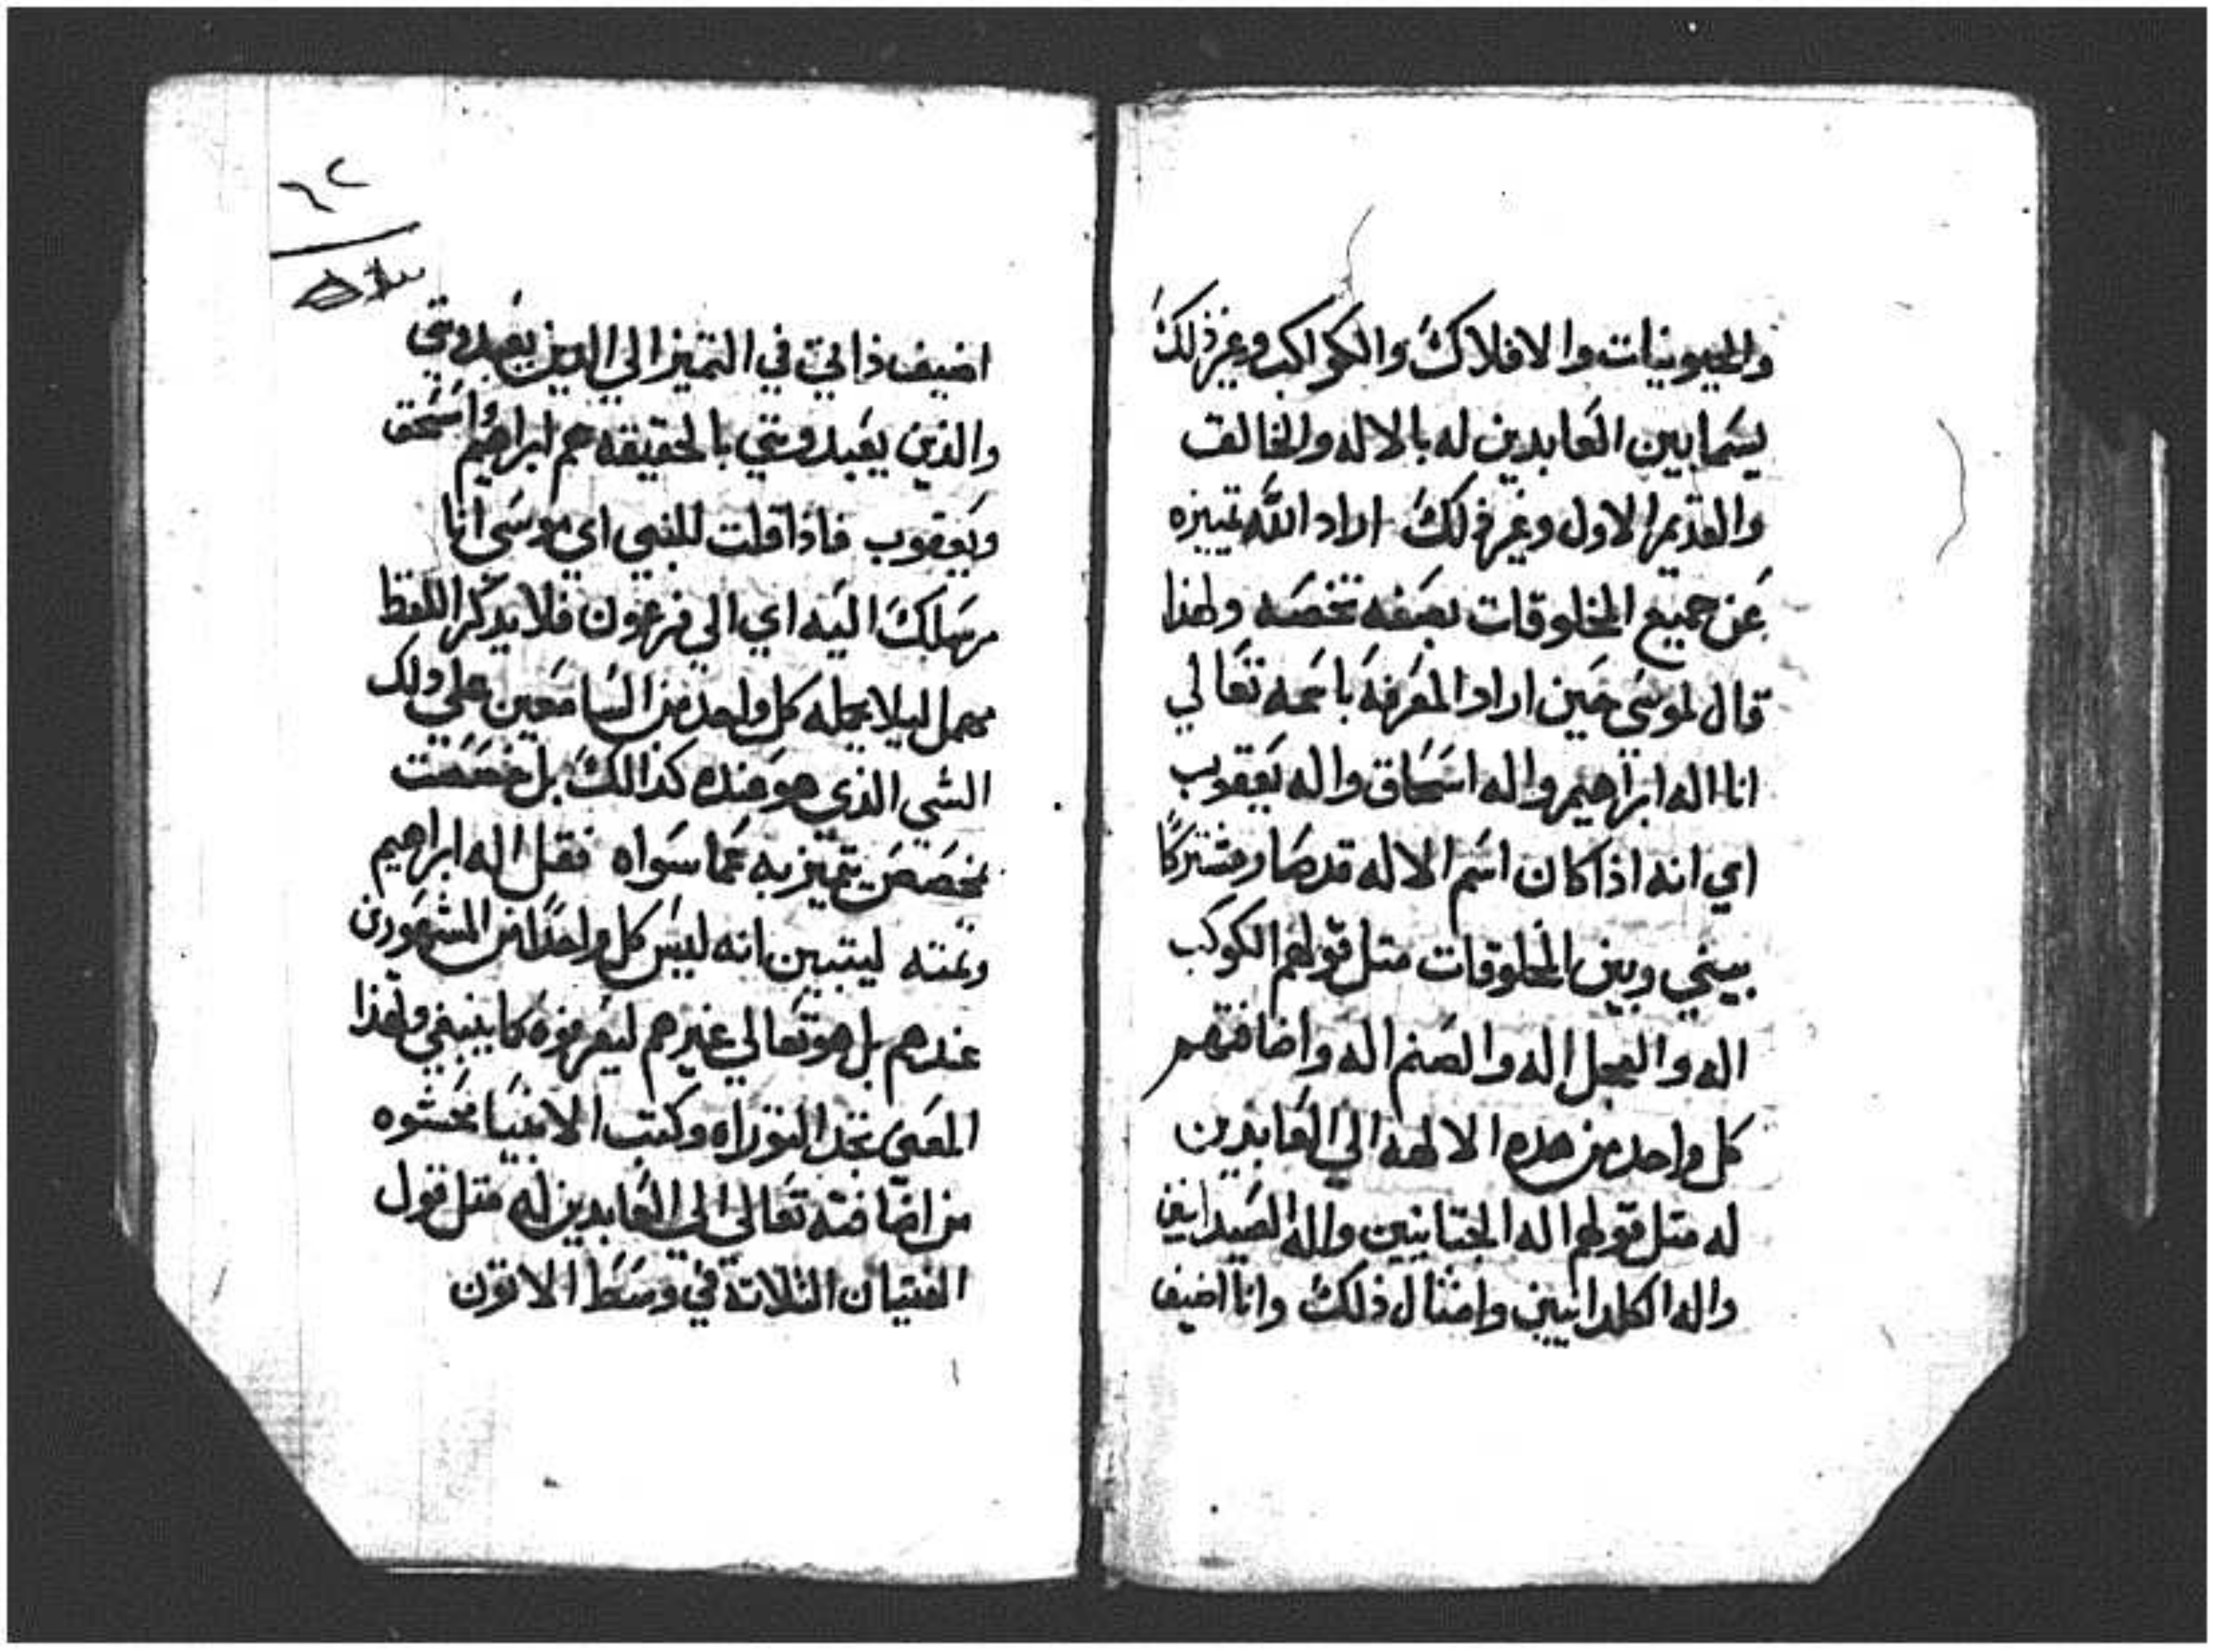 والحيونيات والافلاك والكواكب وغير ذلك
يسما بين العابدين له بالاله والخالق
والقديم الاول وغير ذلك اراد الله تمييزه
عن جميع المخلوقات بصفه تخصه ولهذا
قال لموسى حين اراد المعرفة باسمه تعالي
انا اله ابراهيم واله اسحاق واله يعقوب
اي انه اذا كان اسم الاله قد صار مشتركًا
بيني وبين المخلوقات متل قولهم الكوكب
اله والعجل اله والصنم اله واضافتهم
كل واحد من هده الالهة الي العابدين
له متل قولهم اله الجتانيين واله
واله الكلدانيين وامثال ذلك وانا اضيف
٦٢
اضيف ذاتي في التميز الي الدين يعبدوني
والذين يعبدوني بالحقيقه هم ابراهيم واسحق
ويعقوب فاذا قلت للنبي اي موسى انا
مرسلك اليه اي الي فرعون فلا يدكر اللفظ
مهمل ليلا يحمله كل واحد من السامعين علي ذلك
الشي الذي هو عنده كذالك بل خصصت
بمخصص يتميز به عما سواه فقل اله ابراهيم
وتمته ليتبين انه ليس كل واحدًا من المشهورين
عندهم بل هو تعالي غيرهم ليعرفوه كما ينبغي ولهذا
المعنى تجد التوراه وكتب الانبيا محشوه
من اضافته تعالى الي العابدين له متل قول
الفتيان الثلاتة في وسط الاتون